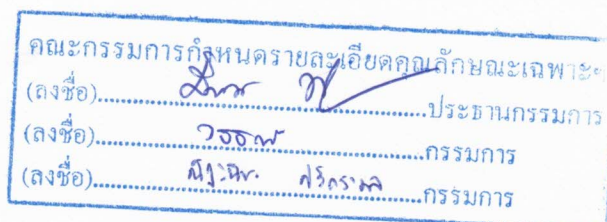 คณะกรรมการกำหนดรายละเอียดคุณลักษณะเฉพาะฯ
(ลงชื่อ)........................ประธานกรรมการ
(ลงชื่อ)........................กรรมการ
(ลงชื่อ)........................กรรมการ